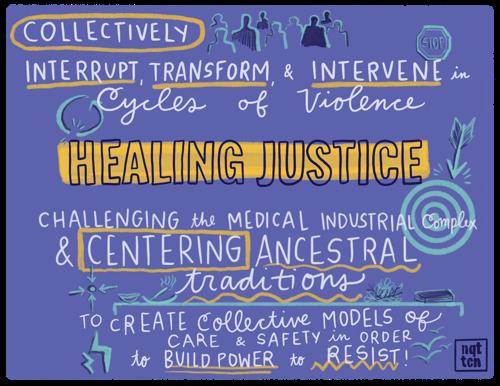 COLLECTIVELY
STOP
INTERRUPT, TRANSFORM, & INTERVENE in
Cycles of Violence
HEALING JUSTICE
CHALLENGING the MEDICAL INDUSTRIAL Complex
& CENTERING ANCESTRAL
traditions
TO CREATE Collective MODELS of
CARE & SAFETY in ORDER
to BUILD POWER to RESIST!
nqt
tcn